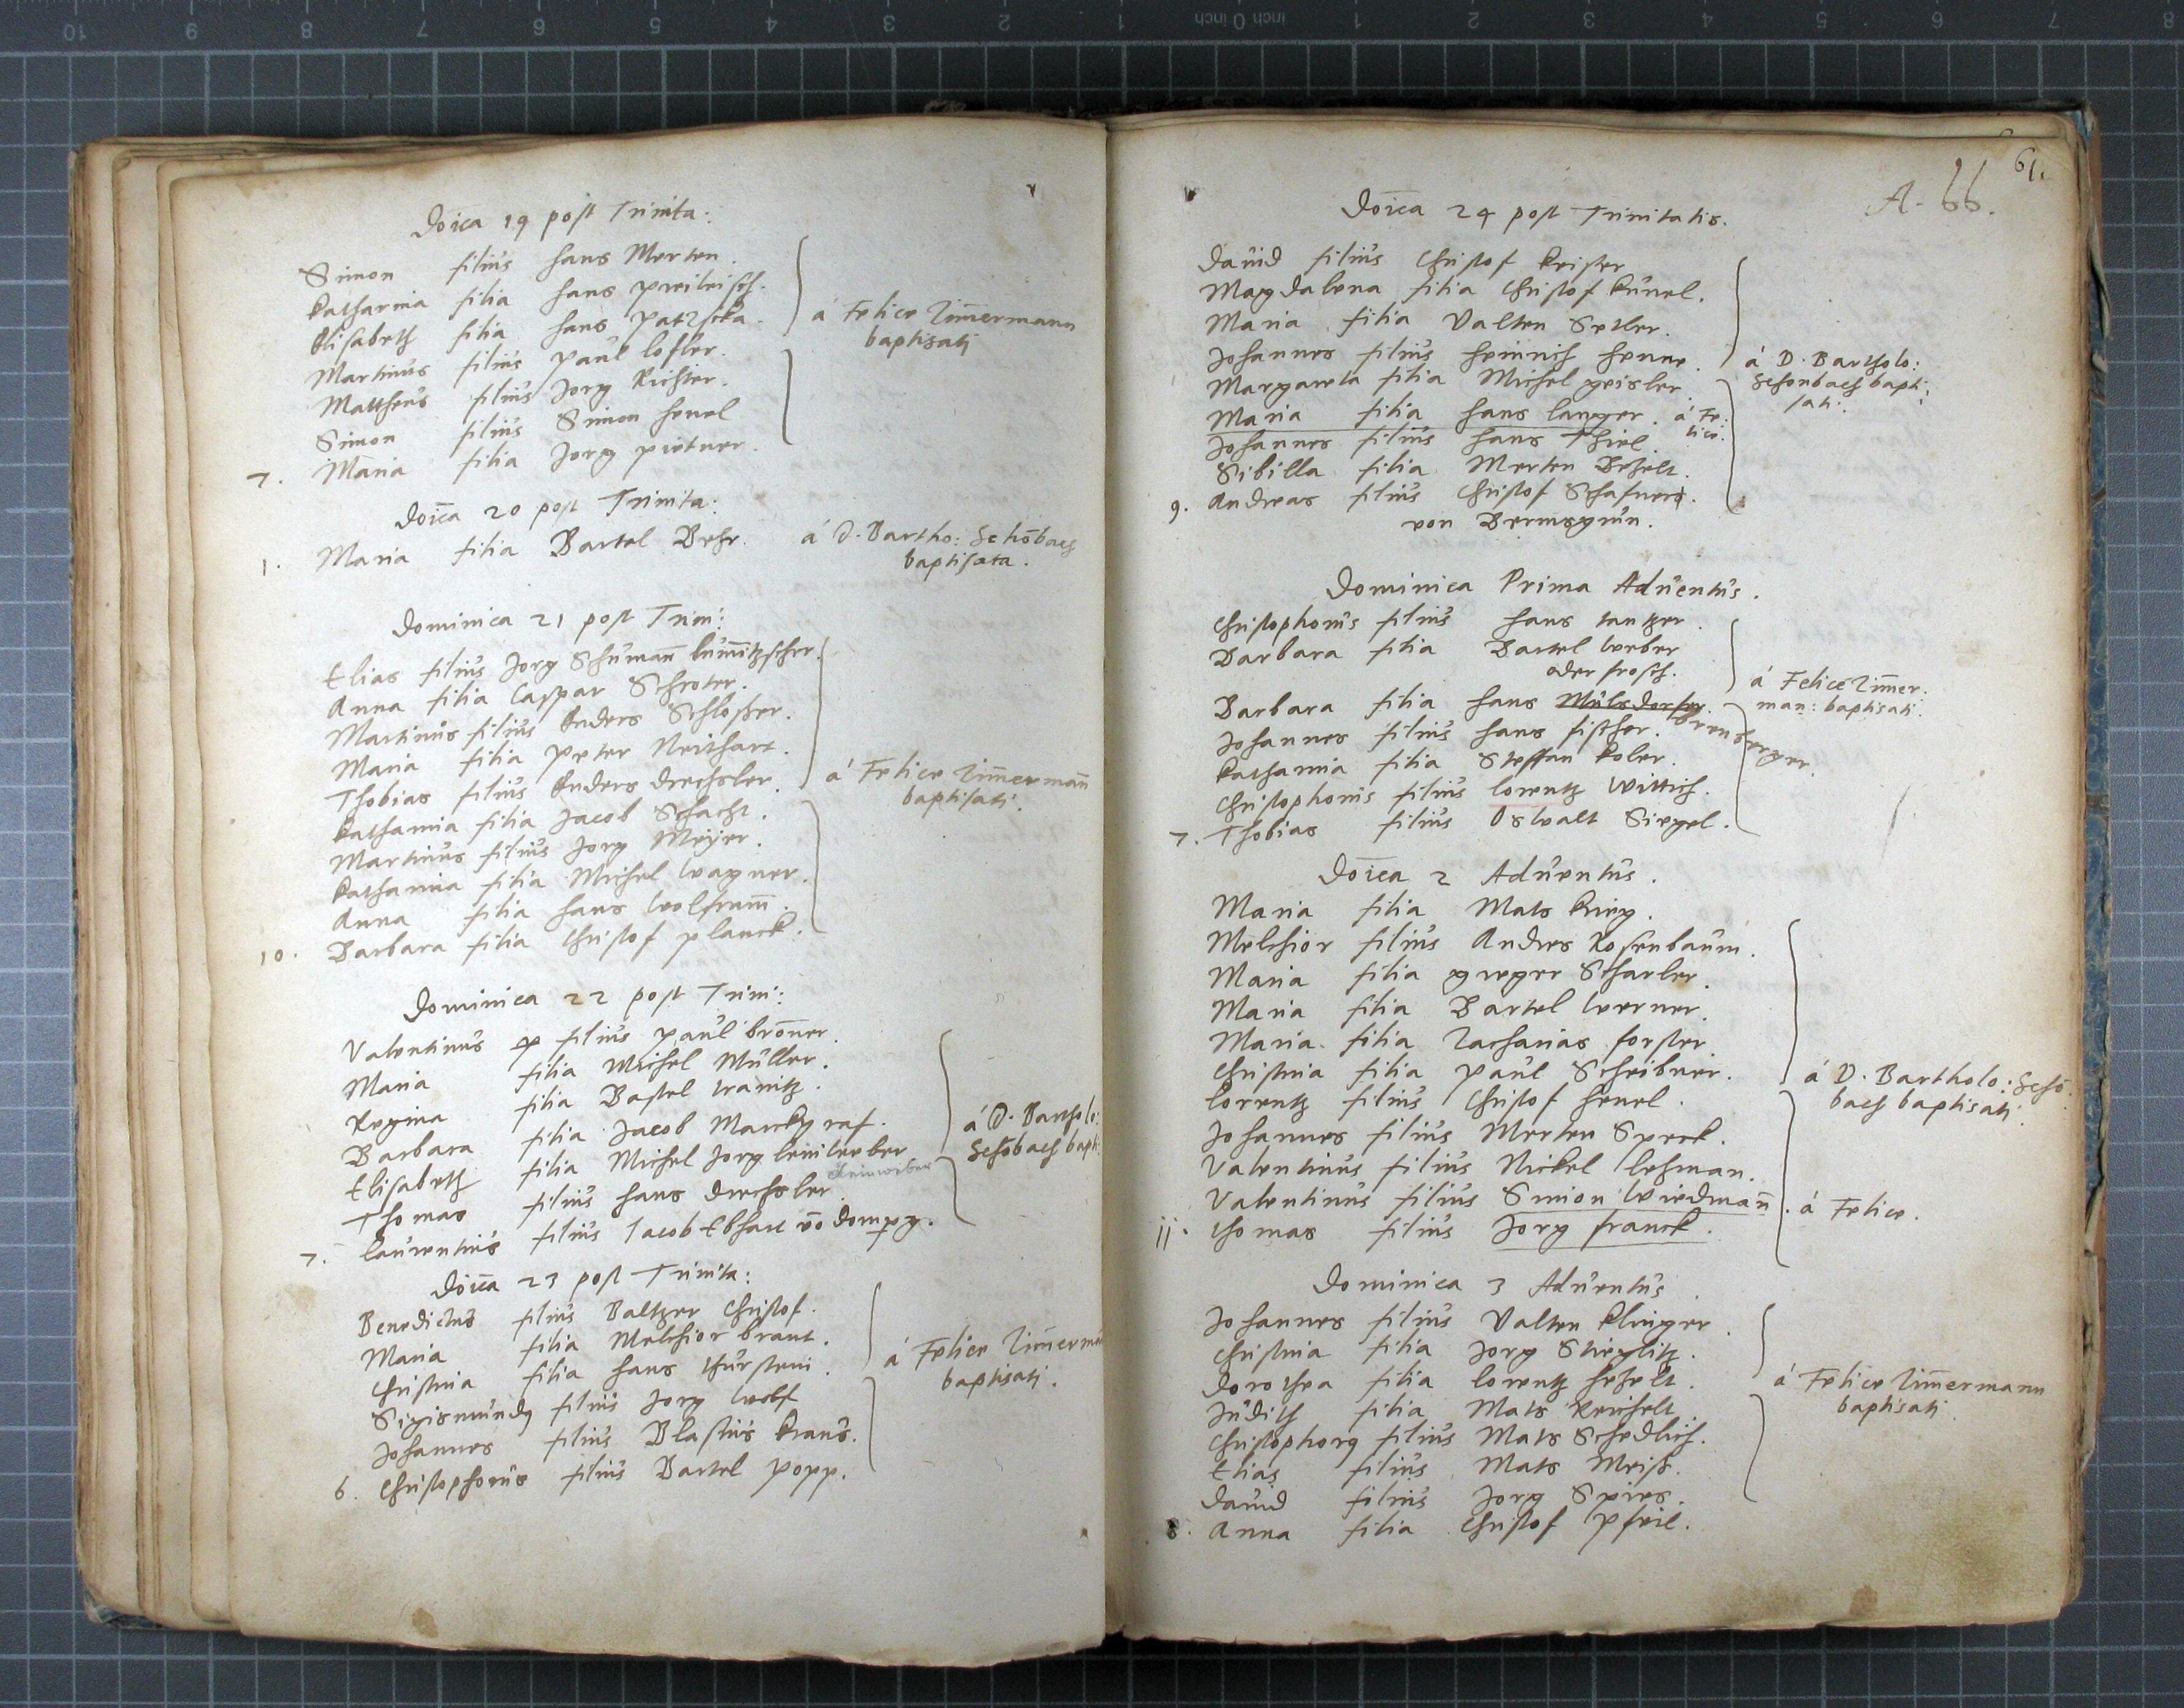 Doīca 19 post Trinita:
Simon filius Hans Merten.
Katharina filia Hans
Elisabeth filia Hans Patzscka.
Martinus filius Paul Lofler.
Mattheus filius Jorg Richter.
Simon filius Simon Henel
7. Maria filia Jorg pietner.
á Felice Zim̄ermann
baptisati
Doīca 20 post Trinita:
1. Maria filia Bartel Behr.
á D. Bartho: Schōbach
baptisata.
Dominica 21 post Trini:
Elias filius Jorg Schuman̄
Anna filia Caspar Schroter.
Martinus filius Anders Schloßer.
Maria filia Peter Neithart.
Thobias filius Anders Drechsler.
Katharina filia Jacob Schacht.
Martinus filius Jorg Meÿer.
Katharina filia Michel Wagner.
Anna filia Hans Wolfram̄.
10. Barbara filia Christof planck.
á Felice Zim̄erman̄
baptisati.
Dominica 22 post Trini:
Valentinus filius Paul brōner.
Maria filia Michel Müller.
Regina filia Bastel
Barbara filia Jacob Marckgraf.
Elisabeth filia Michel Jorg leinweber
Leinweber
Thomas filius Hans Drechsler.
7. Laurentius filius Jacob Ebhart vō
á D. Bartholo:
Schōbach bapti:
Doīca 23 post Trinita:
Benedictus filius Baltzer Christof.
Maria filia Melchior brant.
Christina filia Hans Thurstein.
Sigismundq filius Jorg Wolf
Johannes filius Blasius Kraus.
6. Christophorus filius Bartel Popp.
á Felice Zim̄erman̄
baptisati.
61.
A. 66.
Doīca 24 post Trinitatis.
David filius Christof Keister
Magdalena filia Christof Künel.
Maria filia Valten Setler.
Johannes filius Heinrich Henne.
Margareta filia Michel geisler.
Maria filia Hans langer. á Fe:
lice.
Johannes filius Hans Thiel.
Sibilla filia Merten Behelt.
9. Andreas filius Christof Schafner.
von Bermsgrün.
á D. Bartholo:
Schonbach bapti:
sati.
Dominica Prima Aduentus.
Christophorus filius Hans tantzer.
Barbara filia Bartel Weber
oder frosch.
Barbara filia Hans Mülsdorfer.
Orenberger.
Johannes filius Hans fischer.
Katharina filia Steffan Koler.
Christophorus filius lorentz Wittich.
7. Thobias filius Oswalt Siegel.
á Felice Zim̄er:
man: baptisati.
Doīca 2 Aduentus.
Maria filia Mats Krieg.
Melchior filius Andres Rosenbaum.
Maria filia greger Scharler.
Maria filia Bartel Werner.
Maria filia Zacharias forster.
Christina filia Paul Scheibner.
Lorentz filius Christof Henel.
Johannes filius Merten Speck.
Valentinus filius Nickel Lehman.
Valentinus filius Simon Wiedman̄.
11. thomas filius Jorg franck.
á D. Bartholo: Schō
bach baptisati.
á Felice.
Dominica 3 Aduentus.
Johannes filius Valten Klinger.
Christina filia Jorg Stieglitz.
Dorothea filia lorentz
Judith filia Mats Reichelt
Christophorq filius Mats Schedlich.
Elias filius Mats Meiß.
David filius Jorg Spies.
8. Anna filia Christof Pfeil.
á Felice Zim̄ermann
baptisati.
10 9 8 7 6 5 4 3 2 1 inch 0 inch 1 2 3 4 5 6 7 8